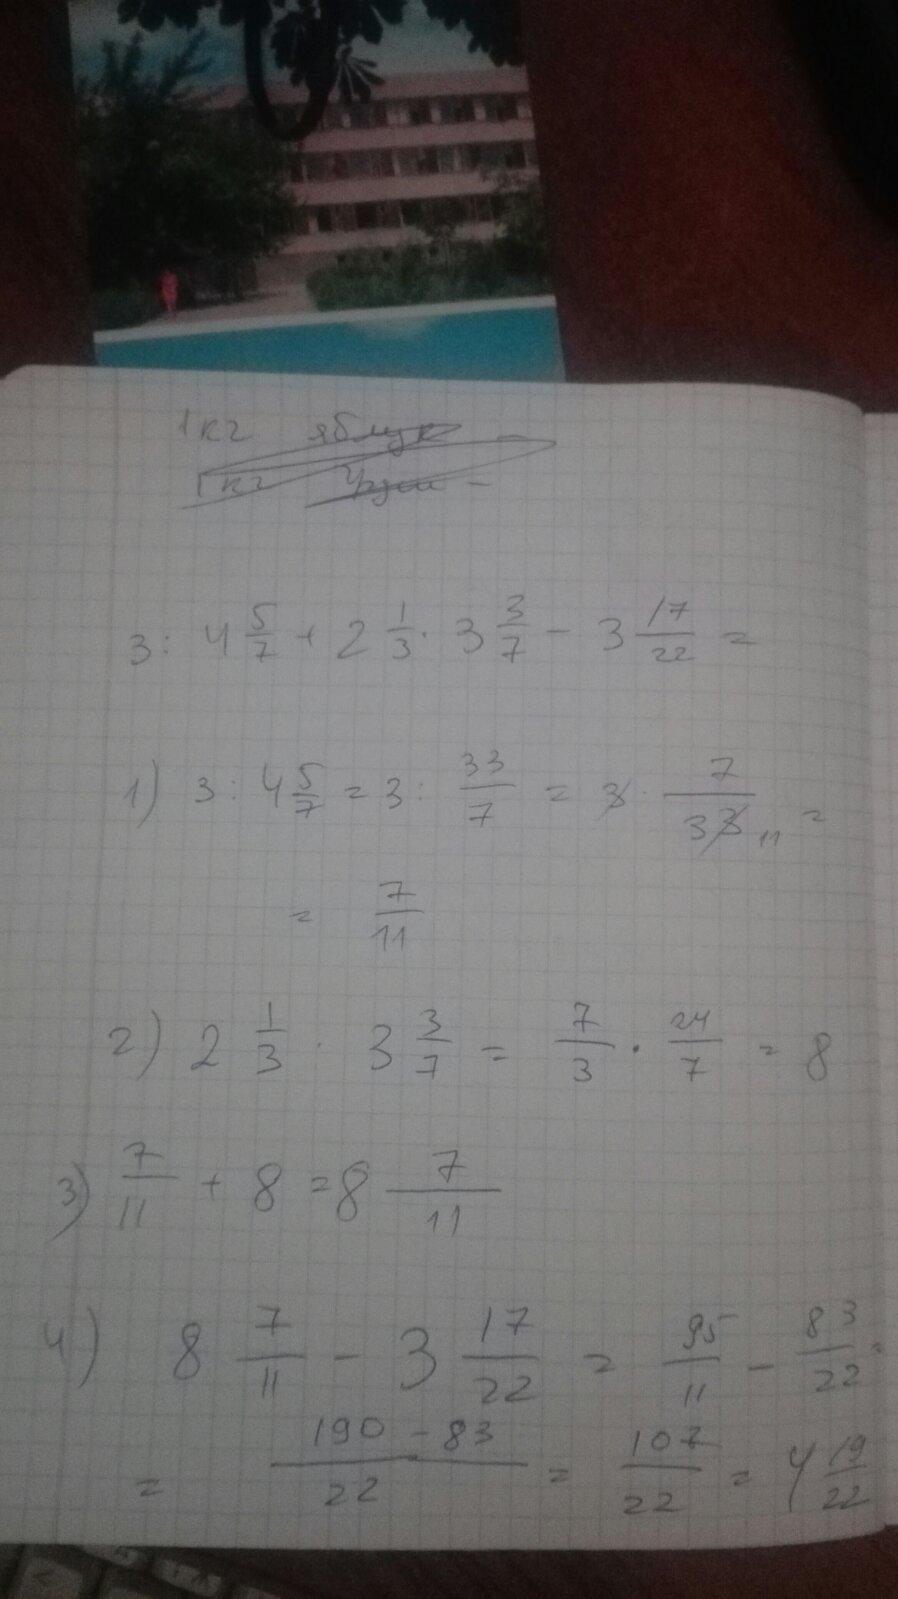 1кг яблук -
1кг груш -
3 : 4 5/7 + 2 1/3 · 3 3/7 - 3 17/22 =
1) 3 : 4 5/7 = 3 : 33/7 = 3 · 7/33 11 =
= 7/11
2) 2 1/3 · 3 3/7 = 7/3 · 24/7 = 8
3) 7/11 + 8 = 8 7/11
4) 8 7/11 - 3 17/22 = 95/11 - 83/22 =
= 190 - 83/22 = 107/22 = 4 19/22